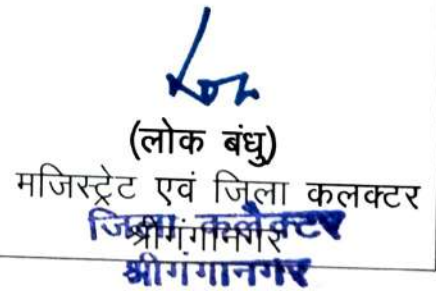 (लोक बंधु)
मजिस्ट्रेट एवं जिला कलक्टर
श्रीगंगानगर
जिला कलैक्टर
श्रीगंगानगर